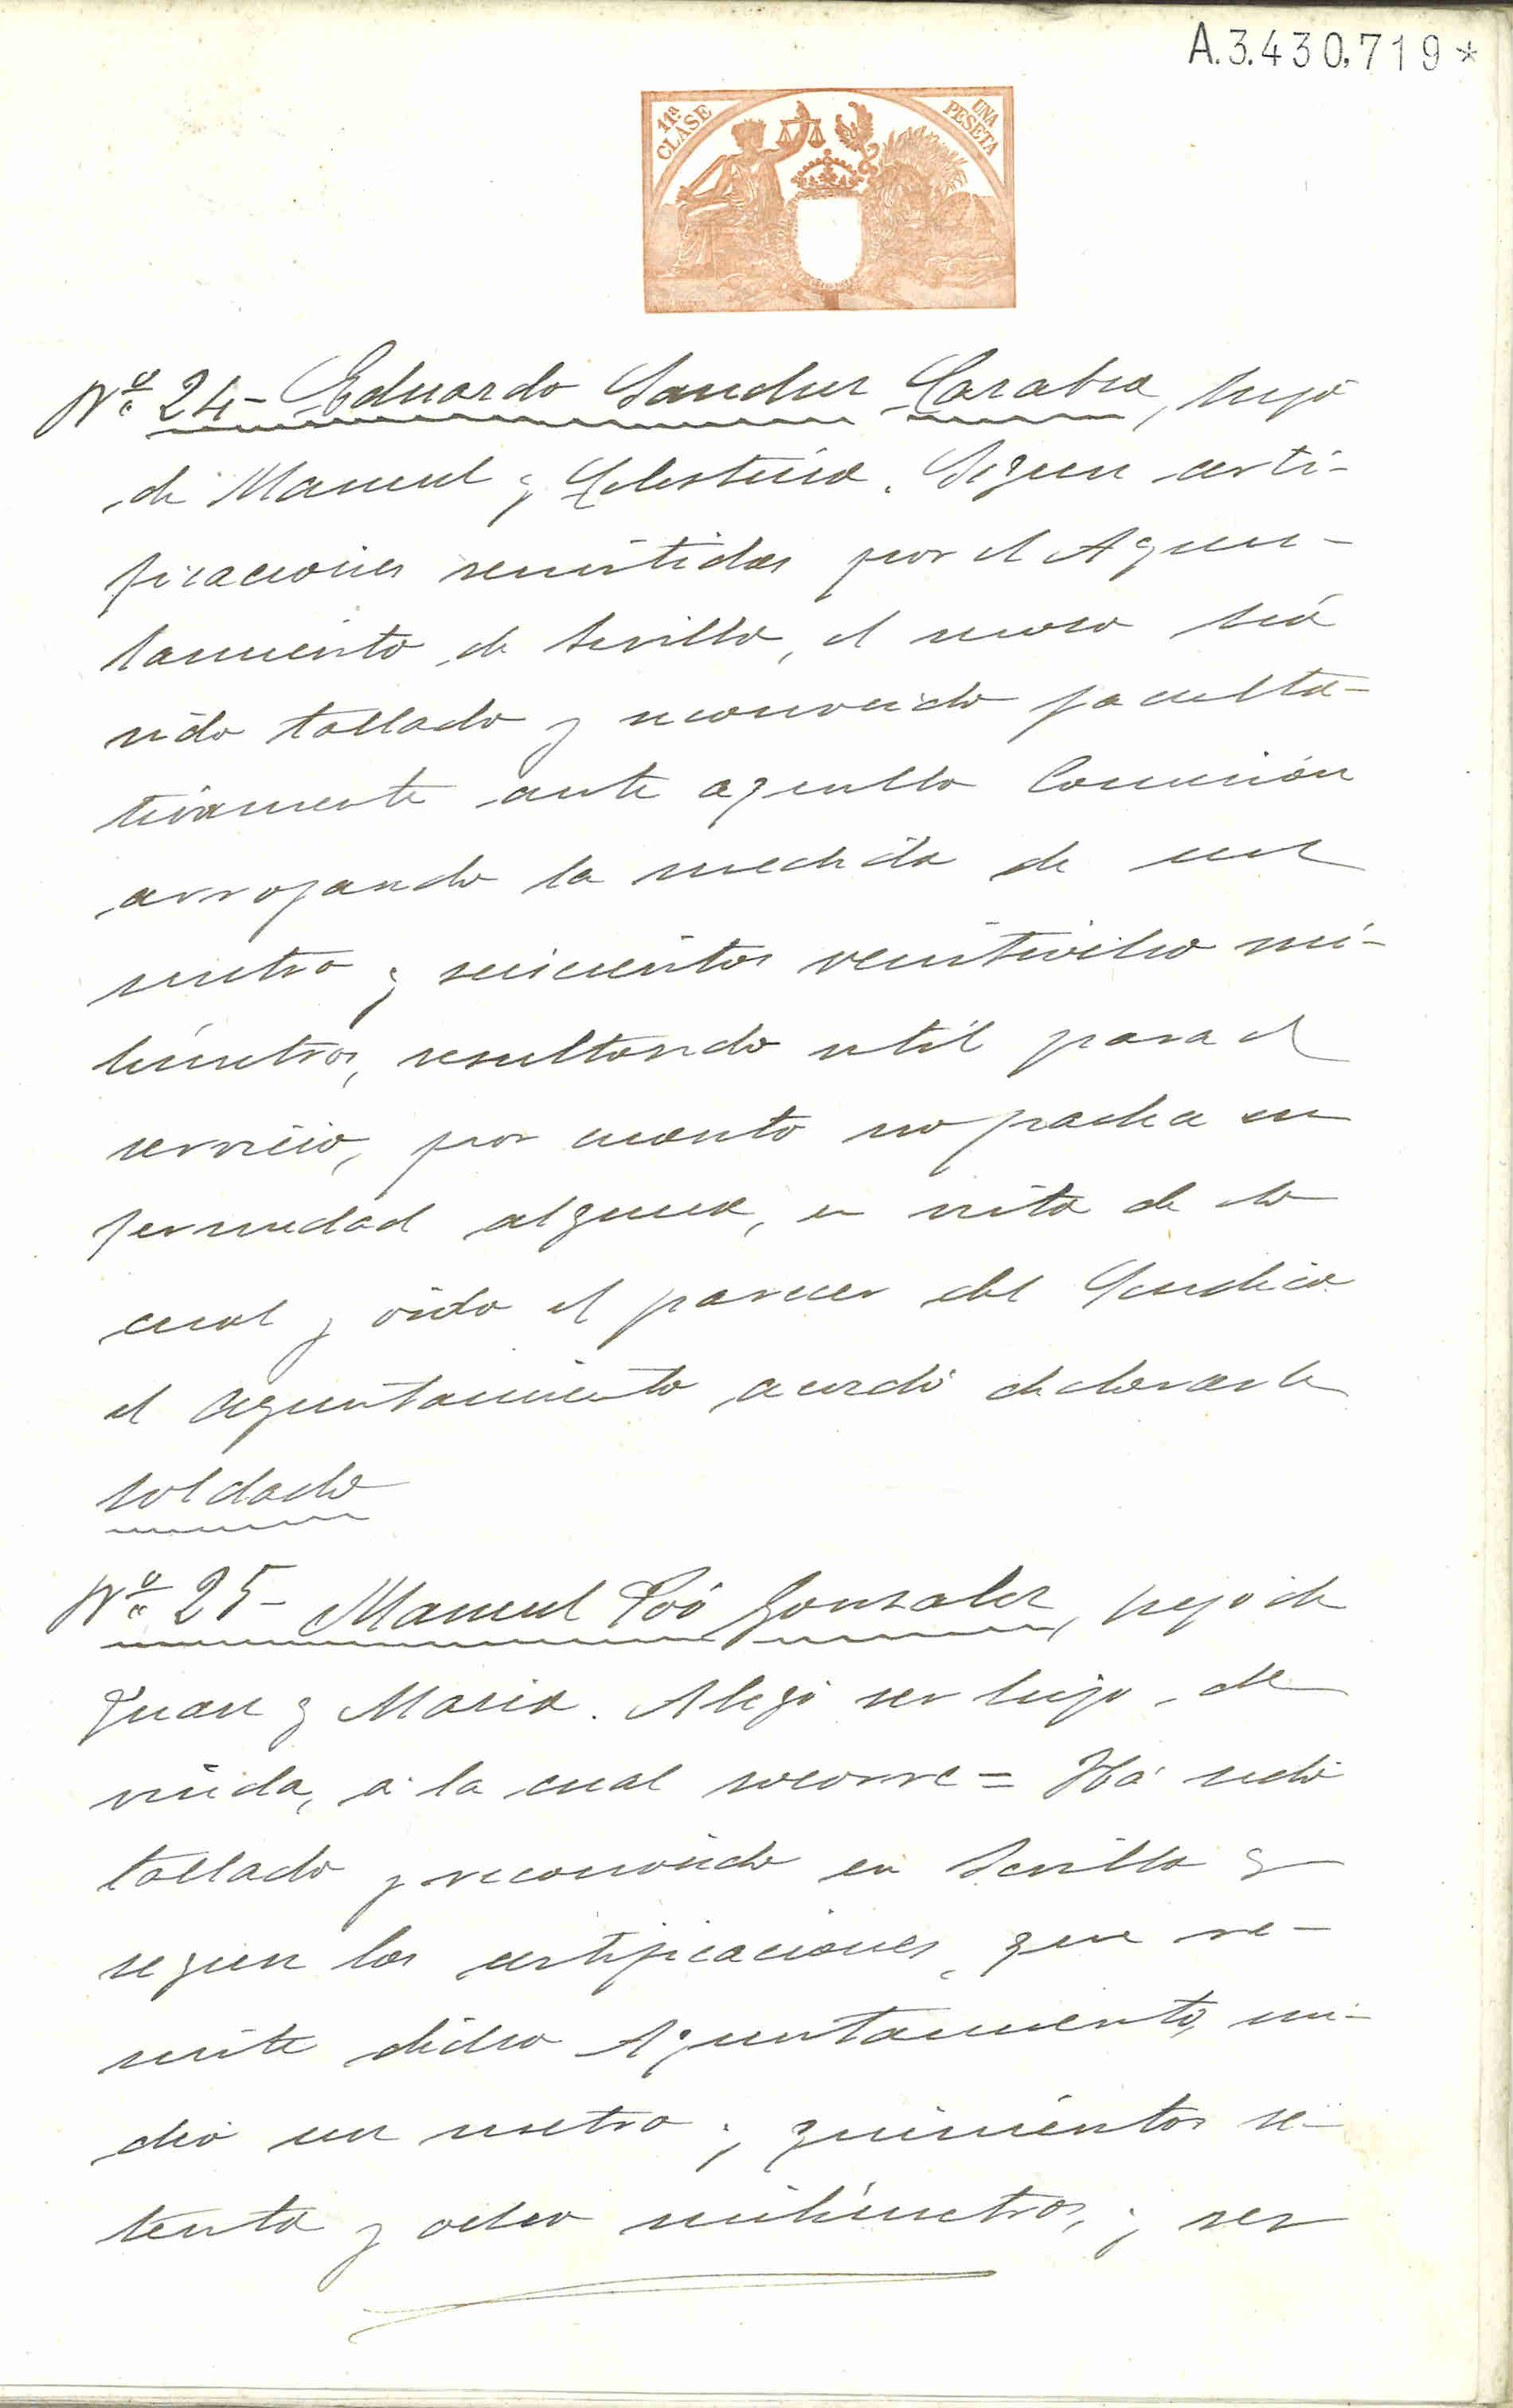 A.3.430.719*
11ª CLASE
UNA PESETA
Nº 24- Eduardo Sanchez Sarabia, hijo
de Manuel y Celestina. Segun certi-
ficaciones remitidas por el Ayun-
tamiento de Sevilla, el mozo há
sido tallado y reconocido faculta-
tivamente ante aquella Comisión
arrojando la medida de un
metro y seiscientos veintiocho mi-
límetros, resultando util para el
servicio, por cuanto no padece en
fermedad alguna, en vista de lo
cual y oido el parecer del Sindico
el ayuntamiento acordó declararle
soldado
Nº 25- Manuel Poó Gonzalez, hijo de
Juan y Maria. Alegó ser hijo de
viuda, á la cual socorre = Há sido
tallado y reconocido en Sevilla y
segun las certificaciones, que re-
mite dicho Ayuntamiento, mi-
dió un metro y quinientos se-
tenta y ocho milímetros, y ser